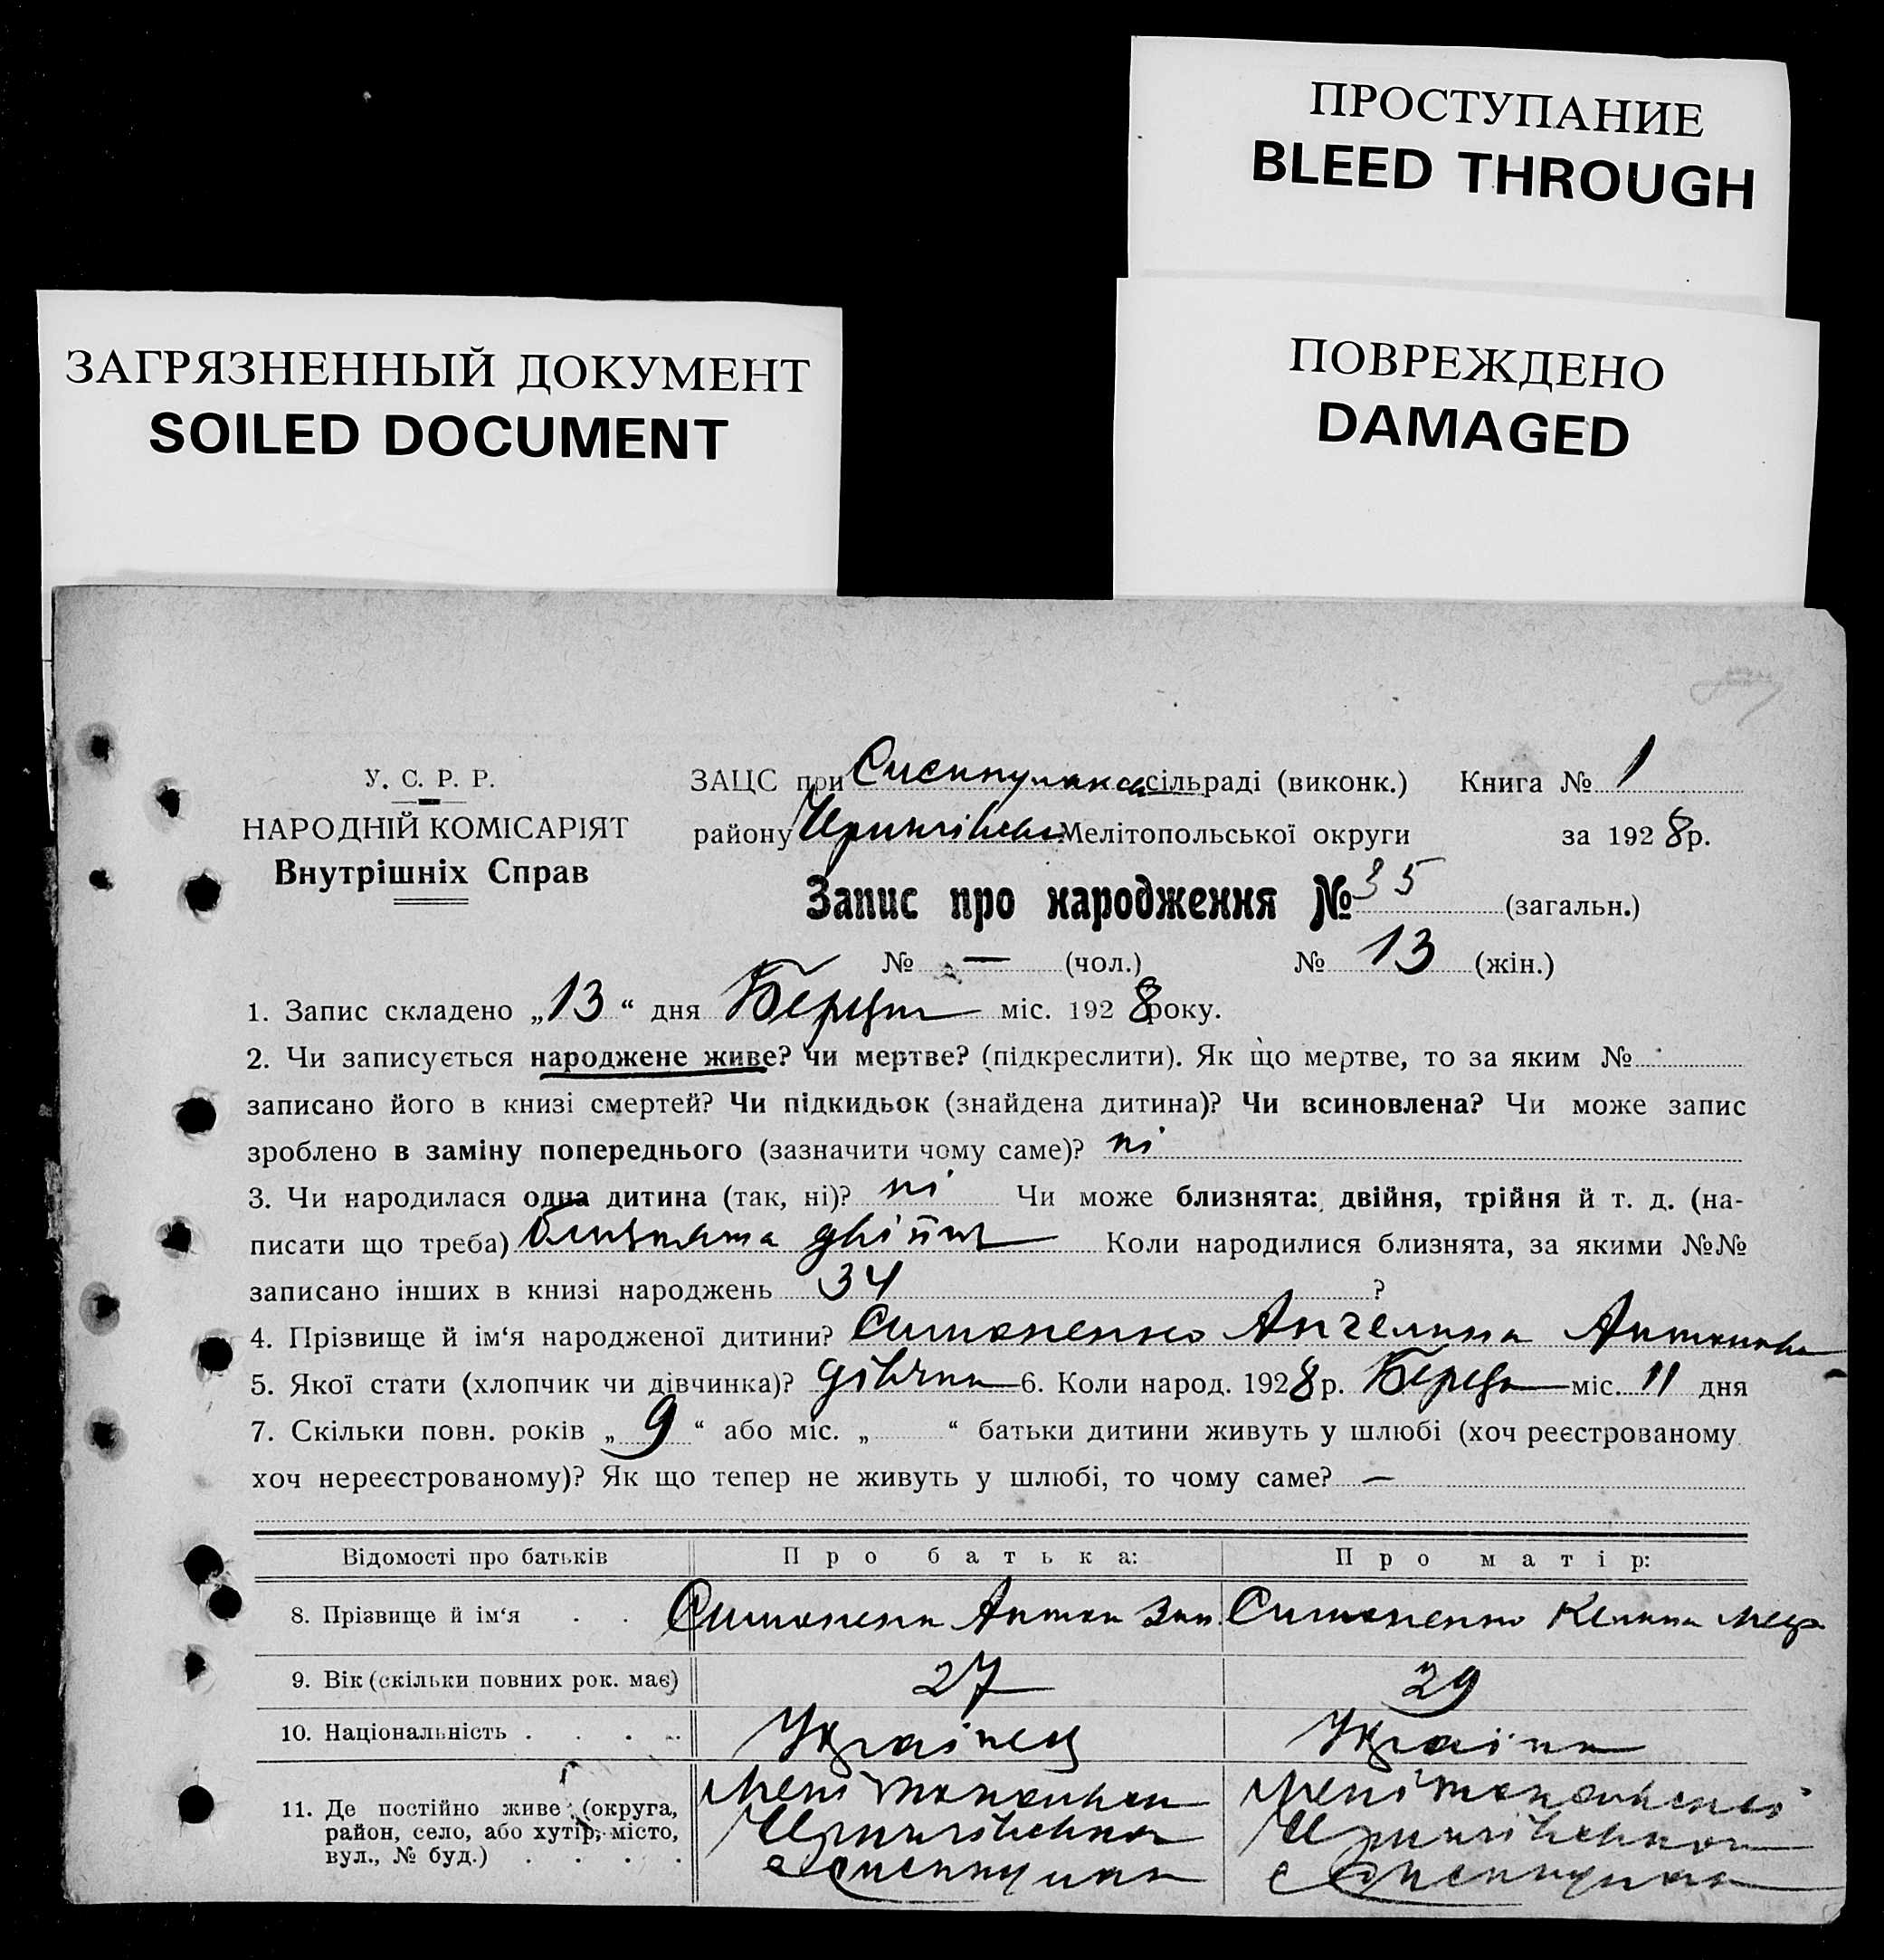 ПРОСТУПАНИЕ
BLEED THROUGH
ЗАГРЯЗНЕННЫЙ ДОКУМЕНТ
SOILED DOCUMENT
ПОВРЕЖДЕНО
DAMAGED
У. С. Р. Р.
НАРОДНІЙ КОМІСАРІЯТ
Внутрішніх Справ
ЗАЦС при сільраді (виконк.) Книга № 1
району Мелітопольської округи за 1928 р.
Запис про народження № 35 (загальн.)
№ — (чол.) № 13 (жін.)
1. Запис складено „13“ дня Березня міс. 1928 року.
2. Чи записується народжене живе? чи мертве? (підкреслити). Як що мертве, то за яким №
записано його в книзі смертей? Чи підкидьок (знайдена дитина)? Чи всиновлена? Чи може запис
зроблено в заміну попереднього (зазначити чому саме)? ні
3. Чи народилася одна дитина (так, ні)? ні Чи може близнята: двійня, трійня й т. д. (на-
писати що треба) близнята двійня Коли народилися близнята, за якими №№
записано інших в книзі народжень 34 ?
4. Прізвище й ім‘я народженої дитини? Симоненко Ангелина Антонова
5. Якої стати (хлопчик чи дівчинка)? дівчина 6. Коли народ. 1928 р. Березня міс. 11 дня
7. Скільки повн. років „9“ або міс. „ “ батьки дитини живуть у шлюбі (хоч реєстрованому
хоч нереєстрованому)? Як що тепер не живуть у шлюбі, то чому саме? —
Відомості про батьків Про батька: Про матір:
8. Прізвище й ім‘я . . Симоненко Антон Симоненко
9. Вік (скільки повних рок. має) 27 29
10. Національність . . . . Українець Українка
11. Де постійно живе (округа,
район, село, або хутір, місто,
вул., № буд.) . . . .